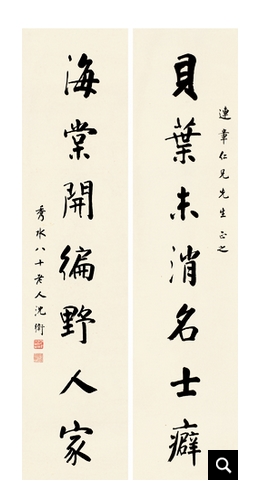 連章仁兄先生正之
貝葉未消名士癖
海棠開編野人家
秀水八十老人沈衛